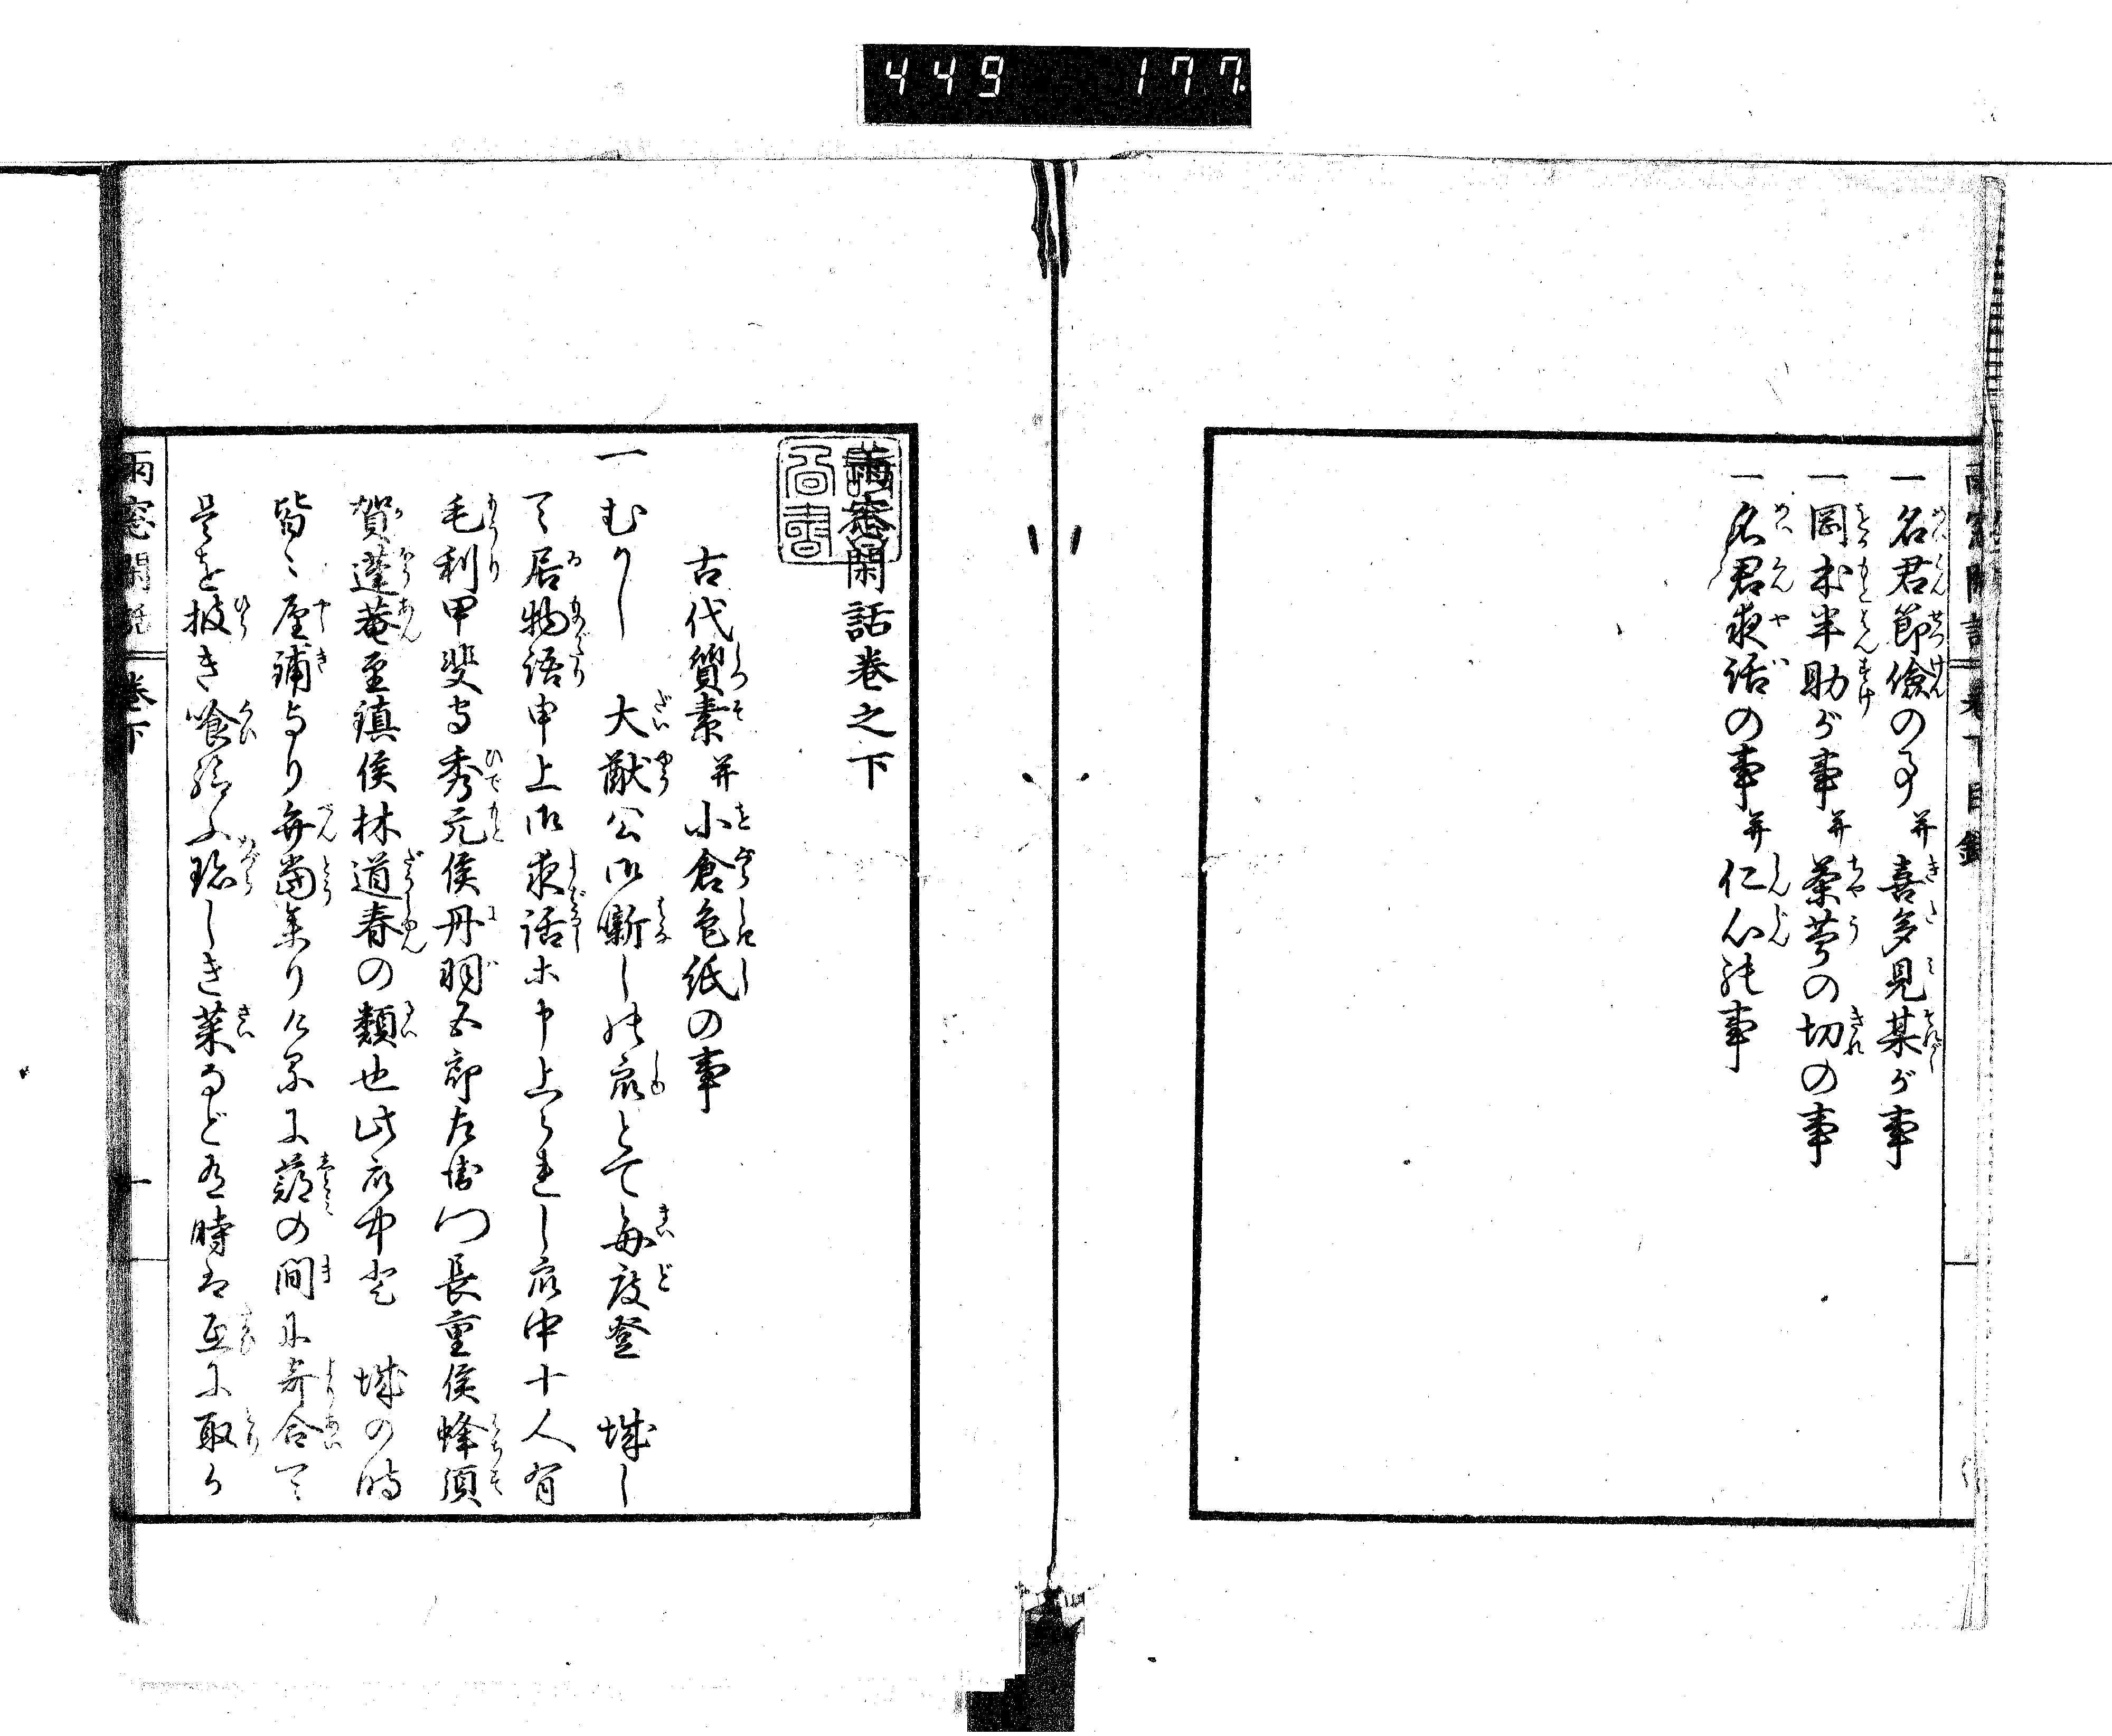 449 177
雨窓閑話 巻下目録
一名君節儉の事并喜多見某が事
一岡本半助が事并茶蕚の切の事
一名君夜話の事并仁心の事
雨窓閑話巻之下
古代質素并小倉色紙の事
一むかし 大猷公御噺し衆とて毎度登 城し
て居物語申上御夜話等申上られし衆中十人有
毛利甲斐守秀元侯丹羽五郎左衛門長重侯蜂須
賀蓬菴至鎮侯林道春の類也此衆中登 城の時
皆々屋舗より弁當来りければ蔀の間に寄合て
是を披き喰給ふ珍しき菜など有時は互に取か
雨窓閑話 巻下 一